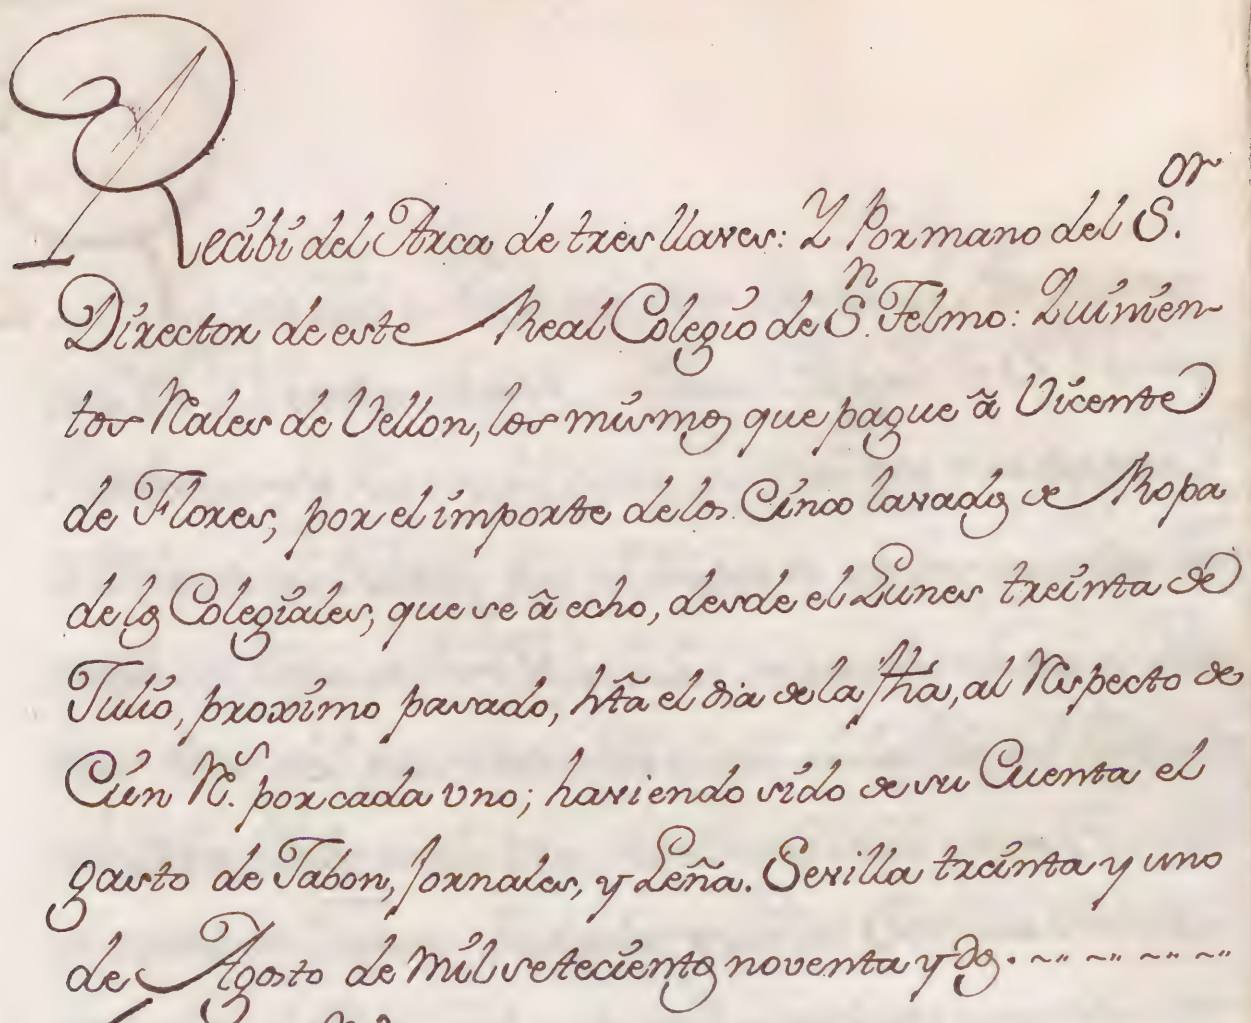 Recibi del Arca de tres llaves: Y Por mano del S.or
Director de este Real Colegio de S.n Telmo: Quinien-
tos Rales de Vellon, los mismos que pague â Vicente
de Flores, por el importe de los Cinco lavados de Ropa
de los Colegiales, que se â echo, desde el Lunes treinta de
Julio, proximo pasado, hta el dia de la fha, al Respecto de
Cien R.s por cada vno; haviendo sido de su Cuenta el
gasto de Jabon, Jornales, y Leña. Sevilla treinta y uno
de Agosto de Mil setecientos noventa y dos.